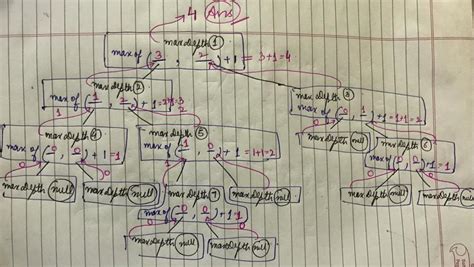 4 Ans
maxDepth(1)
max of (3, 2) + 1 = 3+1=4
maxDepth(2)
max of (1, 2) + 1 = 2+1=3
maxDepth(3)
max of (0, 1) + 1 = 1+1=2
1 2 0 1
maxDepth(4)
max of (0, 0) + 1 = 1
maxDepth(5)
max of (1, 0) + 1 = 1+1=2
maxDepth(null)
maxDepth(6)
max of (0, 0) + 1 = 1
0 0 1 0 0 0
maxDepth(null) maxDepth(null) maxDepth(7) maxDepth(null) maxDepth(null) maxDepth(null)
max of (0, 0) + 1 = 1
0 0
maxDepth(null) maxDepth(null)